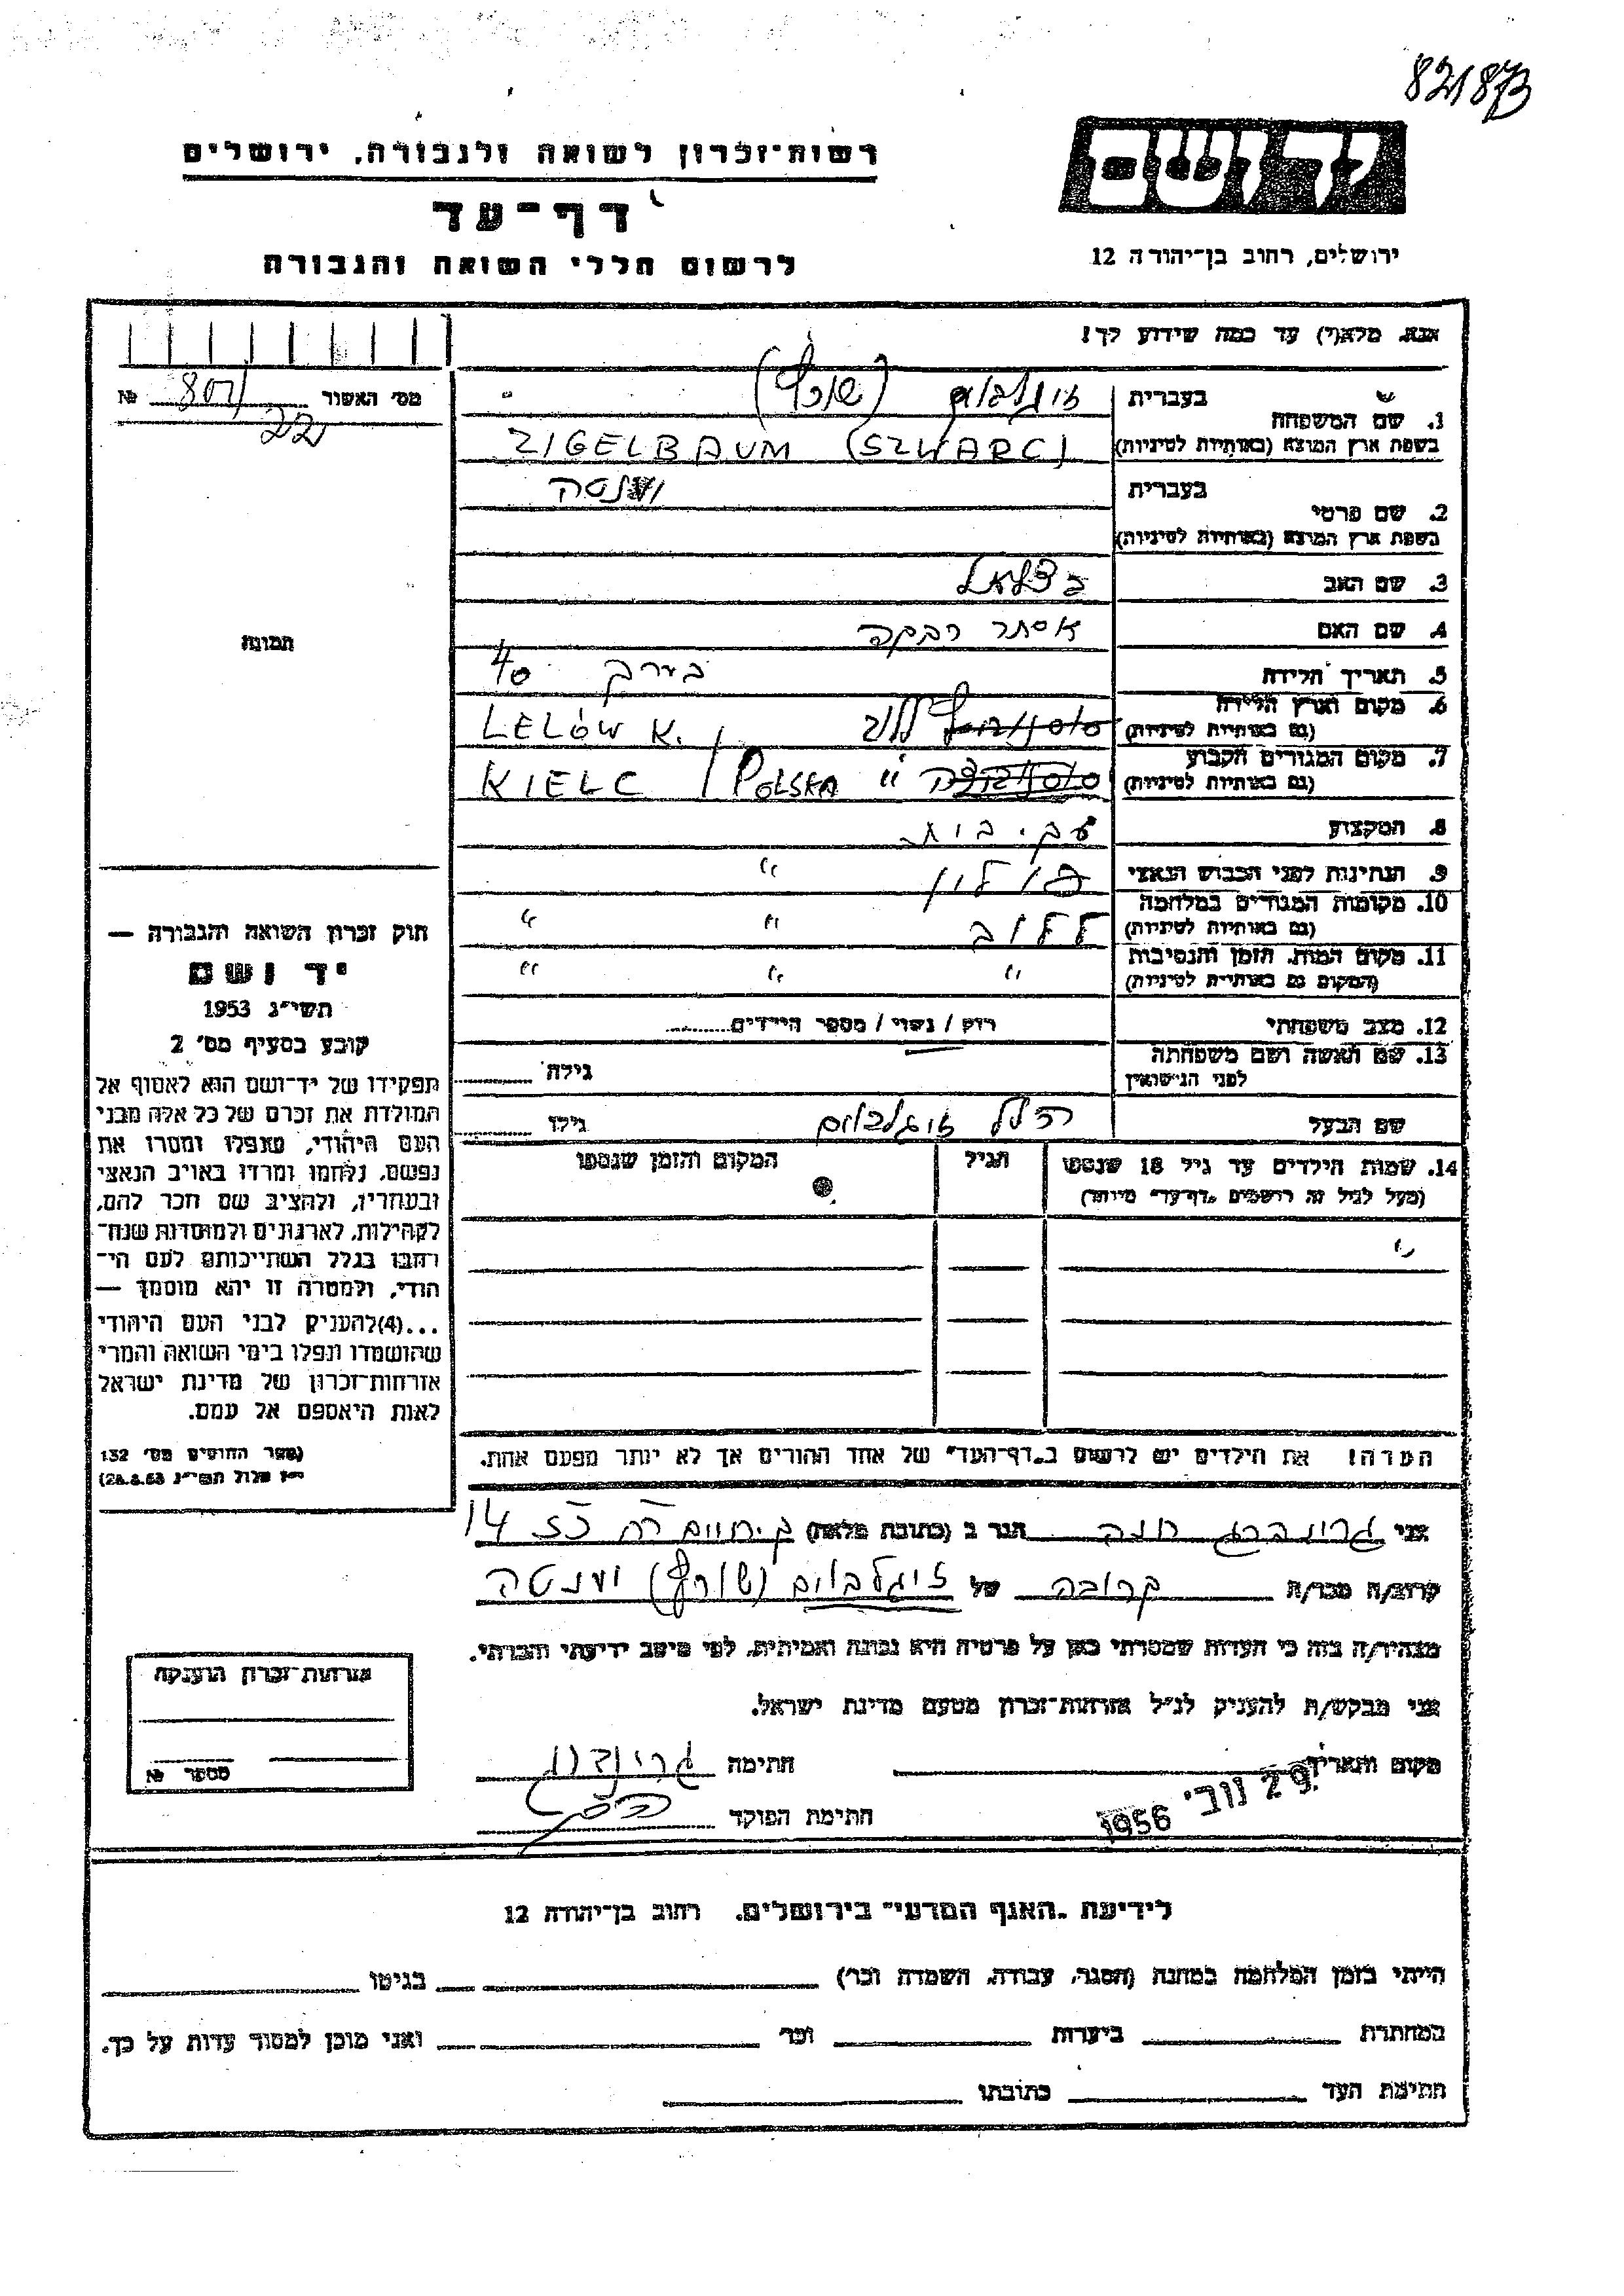 821873
יד ושם
רשות־זכרון לשואה ולגבורה, ירושלים
דף־עד
ירושלים, רחוב בן־יהודה 12
לרשום חללי השואה והגבורה
אנא, מלא(י) עד כמה שידוע לך!
מס׳ האשור №
22
1. שם המשפחה
בעברית זיגלבוים
בשפת ארץ המוצא (באותיות לטיניות) ZIGELBAUM (SZWARC)
2. שם פרטי
בעברית יענטה
בשפת ארץ המוצא (באותיות לטיניות)
3. שם האב בצלאל
4. שם האם אסתר רבקה
תמונה
5. תאריך הלידה בערך 40
6. מקום וארץ הלידה ללוב LELÓW K.
(גם באותיות לטיניות)
7. מקום המגורים הקבוע " KIELC / POLSKA
(גם באותיות לטיניות)
8. המקצוע עק. בית
9. הנתינות לפני הכבוש הנאצי פולין "
10. מקומות המגורים במלחמה ללוב " "
(גם באותיות לטיניות)
11. מקום המות, הזמן והנסיבות " " "
(המקום גם באותיות לטיניות)
12. מצב משפחתי רווק / נשוי / מספר הילדים
13. שם האשה ושם משפחתה גילה
לפני הנישואין
שם הבעל זיגלבוים גילו
14. שמות הילדים עד גיל 18 שנספו הגיל המקום והזמן שנספו
(מעל לגיל זה רושמים „דף־עד״ מיוחד)
חוק זכרון השואה והגבורה —
יד ושם
תשי״ג 1953
קובע בסעיף מס׳ 2
תפקידו של יד־ושם הוא לאסוף אל
המולדת את זכרם של כל אלה מבני
העם היהודי, שנפלו ומסרו את
נפשם, נלחמו ומרדו באויב הנאצי
ובעוזריו, ולהציב שם וזכר להם,
לקהילות, לארגונים ולמוסדות שנח־
רבו בגלל השתייכותם לעם הי־
הודי, ולמטרה זו יהא מוסמך —
...(4) להעניק לבני העם היהודי
שהושמדו ונפלו בימי השואה והמרי
אזרחות־זכרון של מדינת ישראל
לאות היאספם אל עמם.
(ספר החוקים מס׳ 132
י״ז אלול תשי״ג 28.8.53)
הערה! את הילדים יש לרשום ב„דף־העד״ של אחד ההורים אך לא יותר מפעם אחת.
אני גרינברג חנה הגר ב (כתובת מלאה) ק. חיים רח 14
קרוב/ה מכר/ה קרובה של זיגלבוים (שורץ) יענטה
מצהיר/ה בזה כי העדות שמסרתי כאן על פרטיה היא נכונה ואמיתית, לפי מיטב ידיעתי והכרתי.
אני מבקש/ת להעניק לנ״ל אזרחות־זכרון מטעם מדינת ישראל.
מקום ותאריך 29 נוב׳ 1956 חתימה גרינברג
חתימת הפוקד
אזרחות־זכרון הוענקה
מספר №
לידיעת „האגף המדעי״ בירושלים, רחוב בן־יהודה 12
הייתי בזמן המלחמה במחנה (הסגר, עבודה, השמדה וכו׳) בגיטו
במחתרת ביערות וכו׳ ואני מוכן למסור עדות על כך.
חתימת העד כתובתו